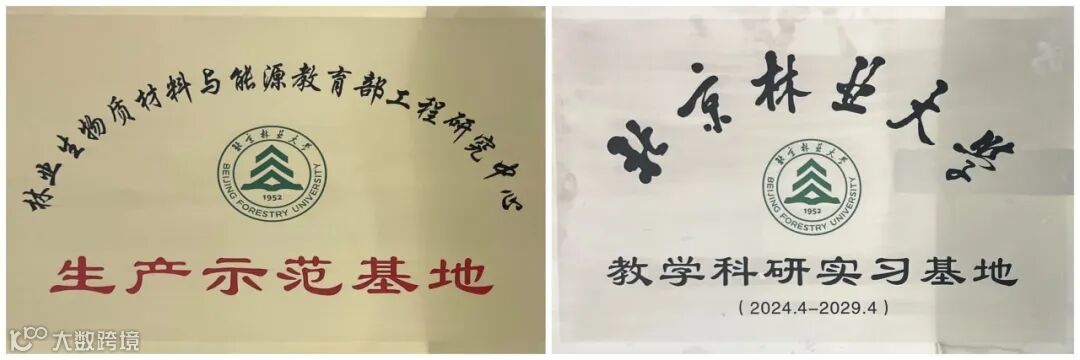 林业生物质材料与能源教育部工程研究中心
北京林业大学
BEIJING FORESTRY UNIVERSITY
1952
生产示范基地
北京林业大学
北京林业大学
BEIJING FORESTRY UNIVERSITY
1952
教学科研实习基地
(2024.4-2029.4)
100 大数跨境